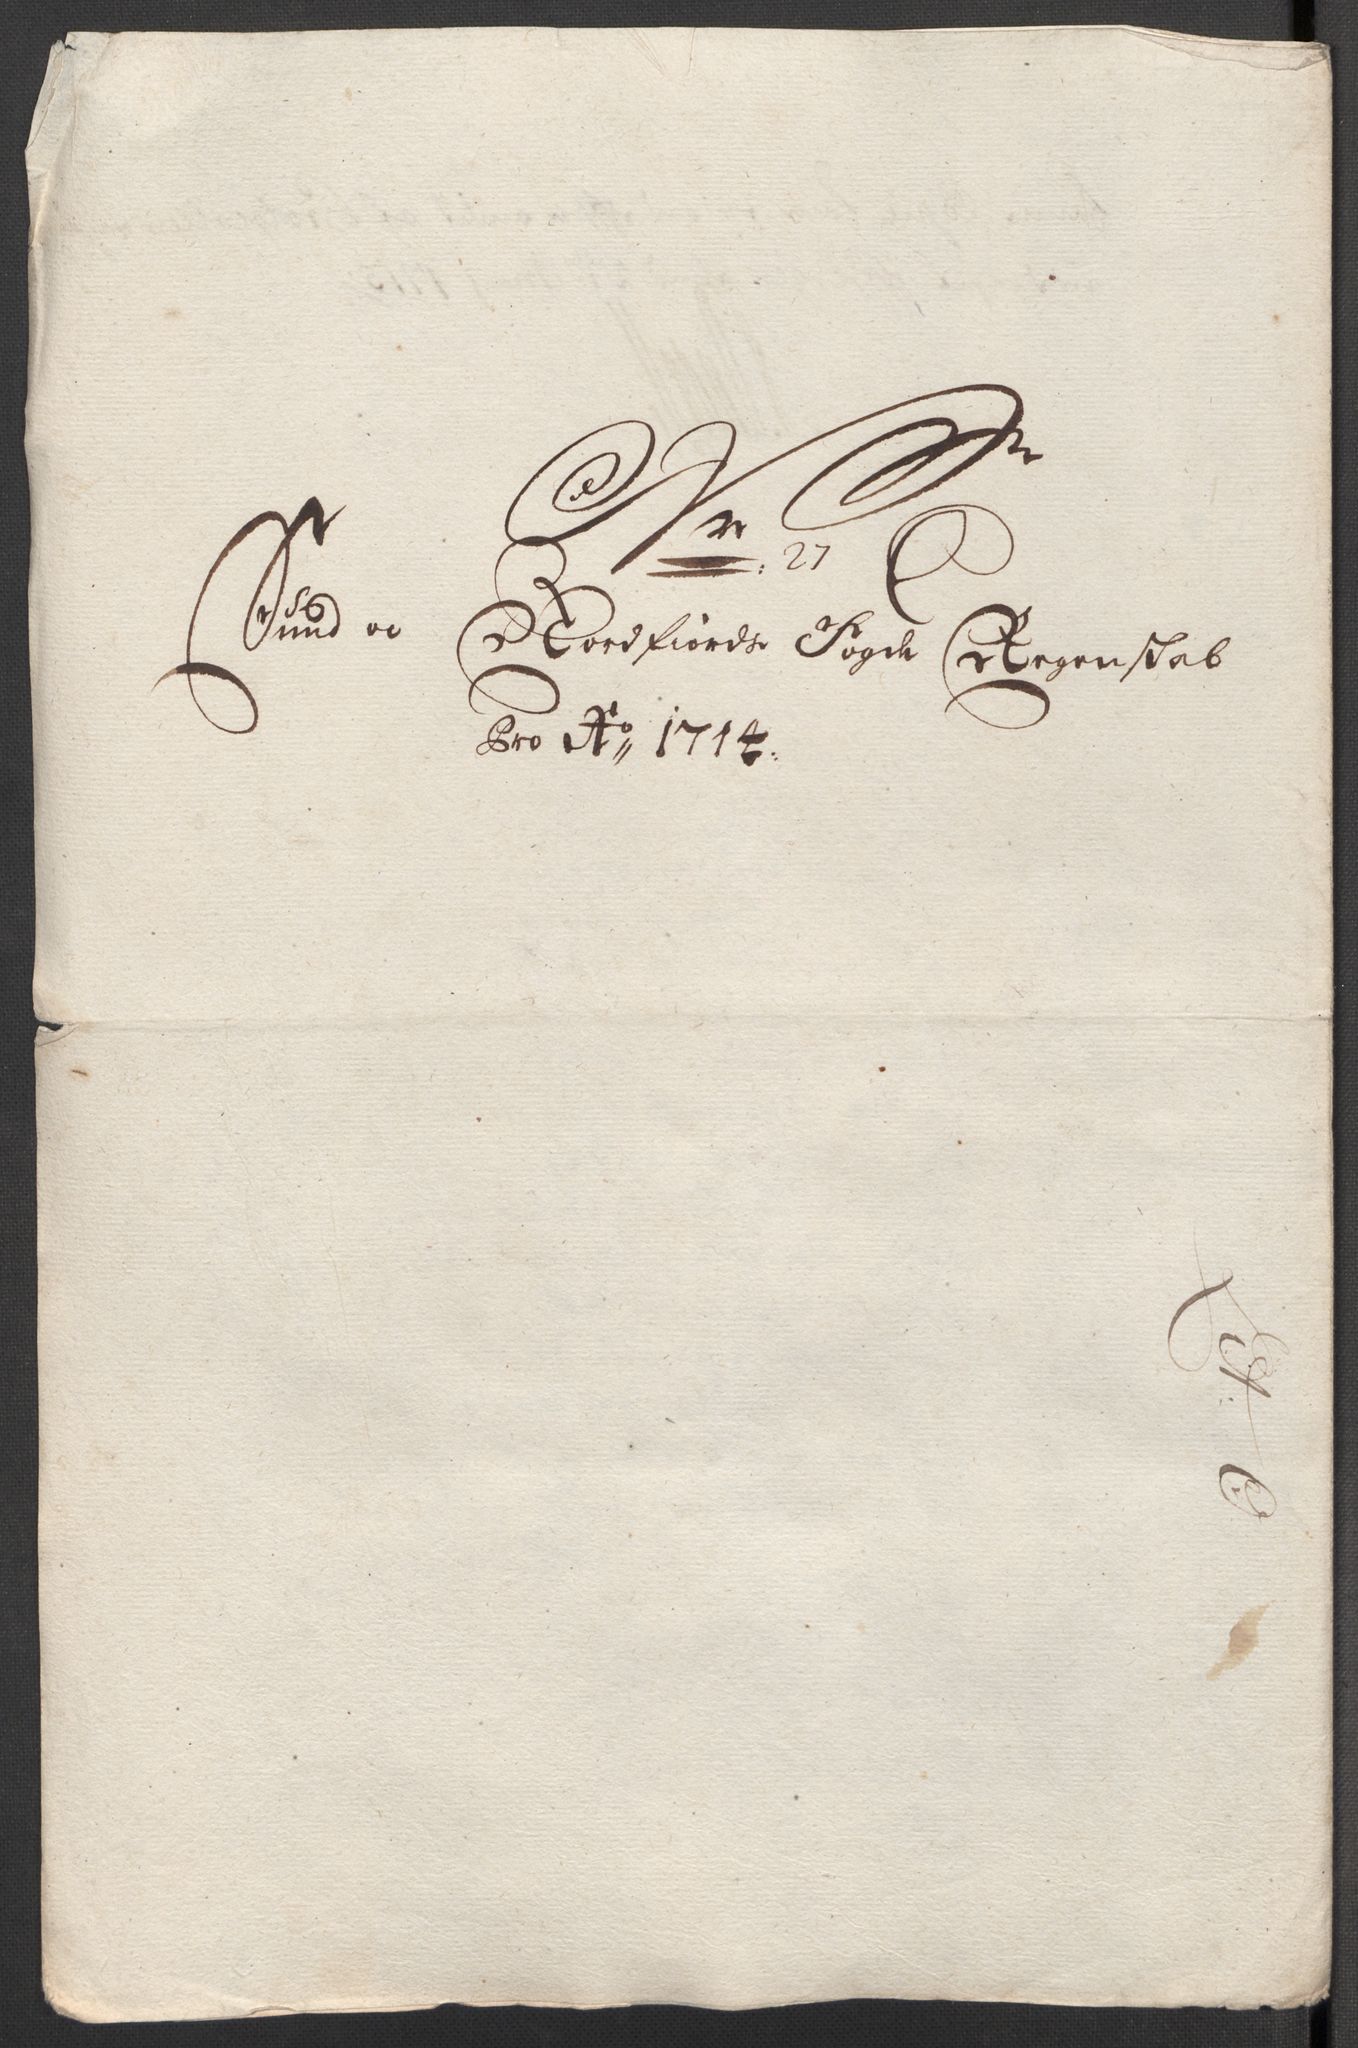 No 27
Sund oc Nordfiords Fogde Regenskab
Pro Ao 1714.
Lit. C